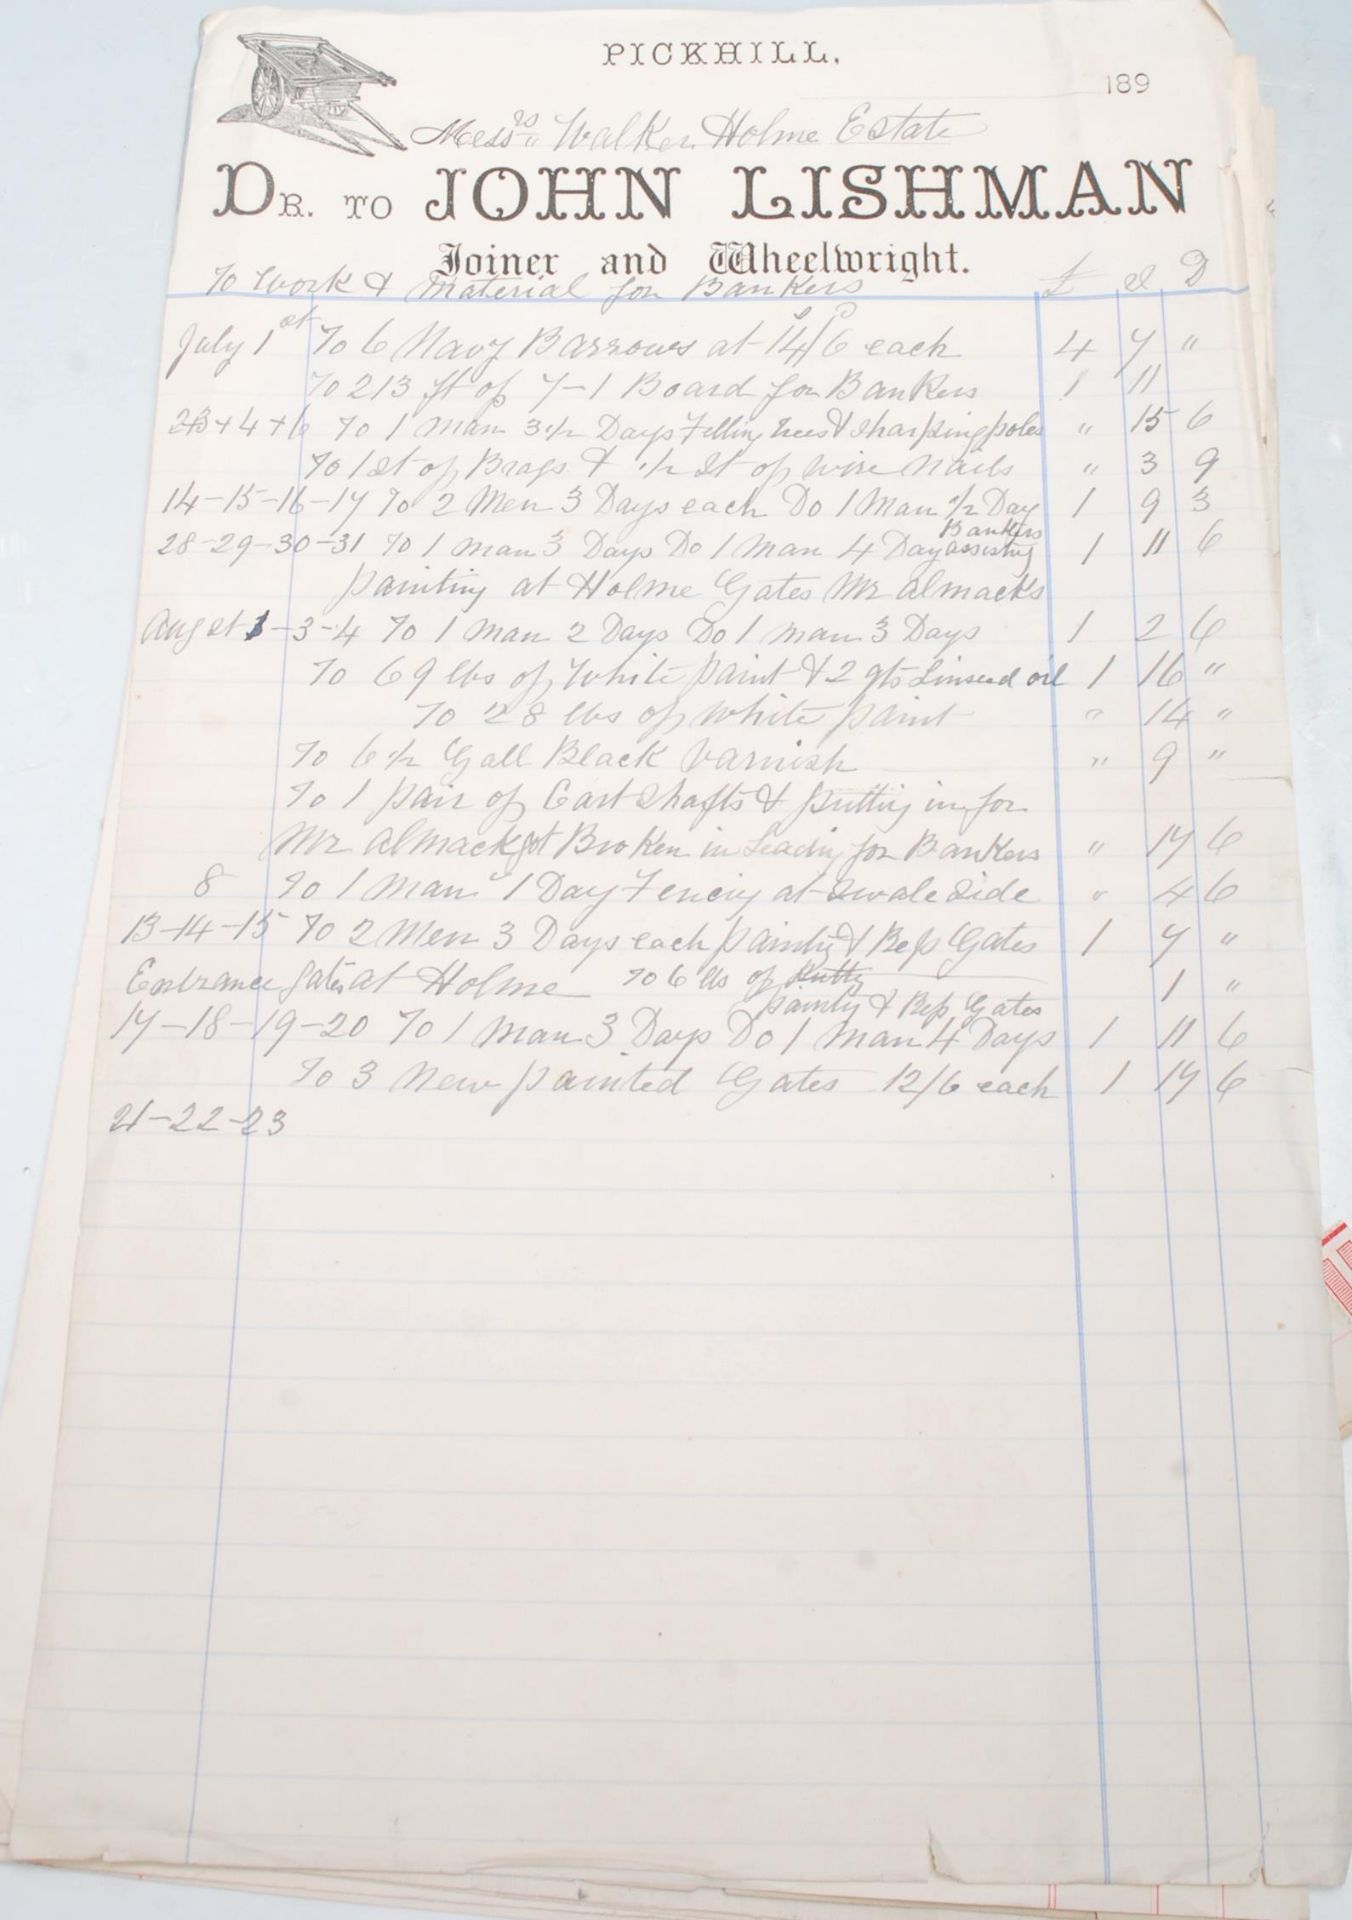 PICKHILL,
189
Messrs Walker Holme Estate
DR. TO JOHN LISHMAN
Joiner and Wheelwright.
To Work & Material for Bankers £ S D
July 1st To 6 Navy Barrows at 14/6 each 4 7 "
To 213 ft of 7-1 Board for Bankers 1 11
2+3+4+6 To 1 Man 3 1/2 Days Felling trees & sharping poles " 15 6
To 1 st of Brags & 1/2 st of wire nails " 3 9
14-15-16-17 To 2 Men 3 Days each Do 1 Man 1/2 Day 1 9 3
Bankers
28-29-30-31 To 1 man 3 Days Do 1 Man 4 Day assisting 1 11 6
painting at Holme Gates Mr Almacks
Augst 1-3-4 To 1 man 2 Days Do 1 man 3 Days 1 2 6
To 69 lbs of White paint & 2 qts Linseed oil 1 16 "
To 28 lbs of white paint " 14 "
To 6 1/2 Gall Black Varnish " 9 "
To 1 pair of Cart Shafts & putting in for
Mr Almack got Broken in Leading for Bankers " 17 6
8 To 1 Man 1 Day Fencing at Swale Side " 4 6
13-14-15 To 2 Men 3 Days each painting & Rep Gates 1 7 "
Entrance gates at Holme To 6 lbs of Putty 1 "
painting & Rep Gates
17-18-19-20 To 1 Man 3 Days Do 1 Man 4 Days 1 11 6
To 3 New painted Gates 12/6 each 1 17 6
21-22-23